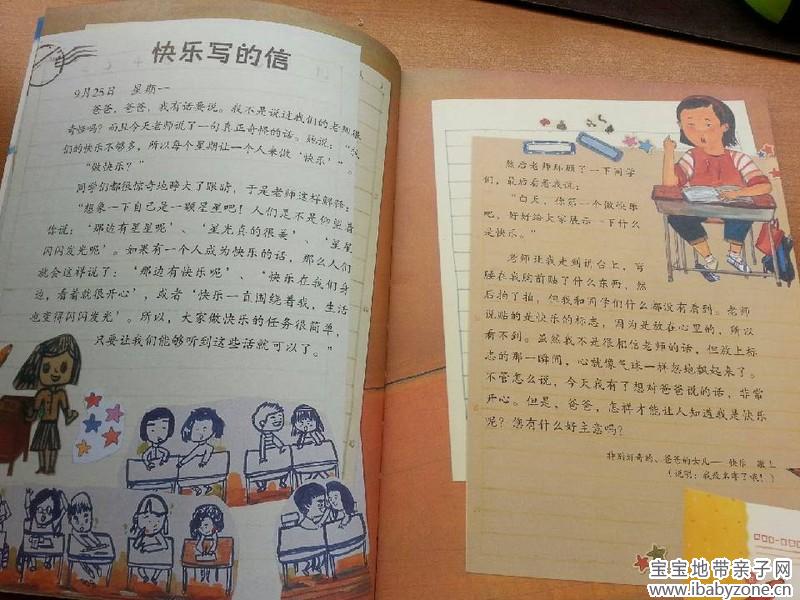 快乐写的信
9月25日 星期一
爸爸，爸爸，我有话要说。我不是说过我们的老师很
奇怪吗？而且今天老师说了一句真正奇怪的话。她说：“
们的快乐不够多，所以每个星期让一个人来做‘快乐’”。
“做快乐？”
同学们都很惊奇地睁大了眼睛，于是老师这样解释：
“想象一下自己是一颗星星吧！人们是不是仰望着
你说：‘那边有星星呢’、‘星光真的很美’、‘星星
闪闪发光呢’。如果有一个人成为快乐的话，那么人们
就会这样说了：‘那边有快乐呢’、‘快乐在我们身
边，看着就很开心’，或者‘快乐一直围绕着我，生活
也变得闪闪发光’。所以，大家做快乐的任务很简单，
只要让我们能够听到这些话就可以了。”
然后老师环顾了一下同学
们，最后看着我说：
“白天，你第一个做快乐
吧，好好给大家展示一下什么
是快乐。”
老师让我走到讲台上，弯
腰在我胸前贴了什么东西，然
后拍了拍，但我和同学们什么都没有看到。老师
说贴的是快乐的标志，因为是放在心里的，所以
看不到。虽然我不是很相信老师的话，但放上标
志的那一瞬间，心就像气球一样忽地飘起来了。
不管怎么说，今天我有了想对爸爸说的话，非常
开心。但是，爸爸，怎样才能让人知道我是快乐
呢？您有什么好主意吗？
特别好奇的、爸爸的女儿——快乐 敬上
（说明：我改名字了哦！）
宝宝地带亲子网
www.ibabyzone.cn